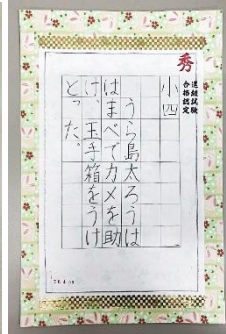 秀
進級試験
合格認定
小四
うら島太ろうは
はまべでカメを助
け、玉手箱をうけ
とった。